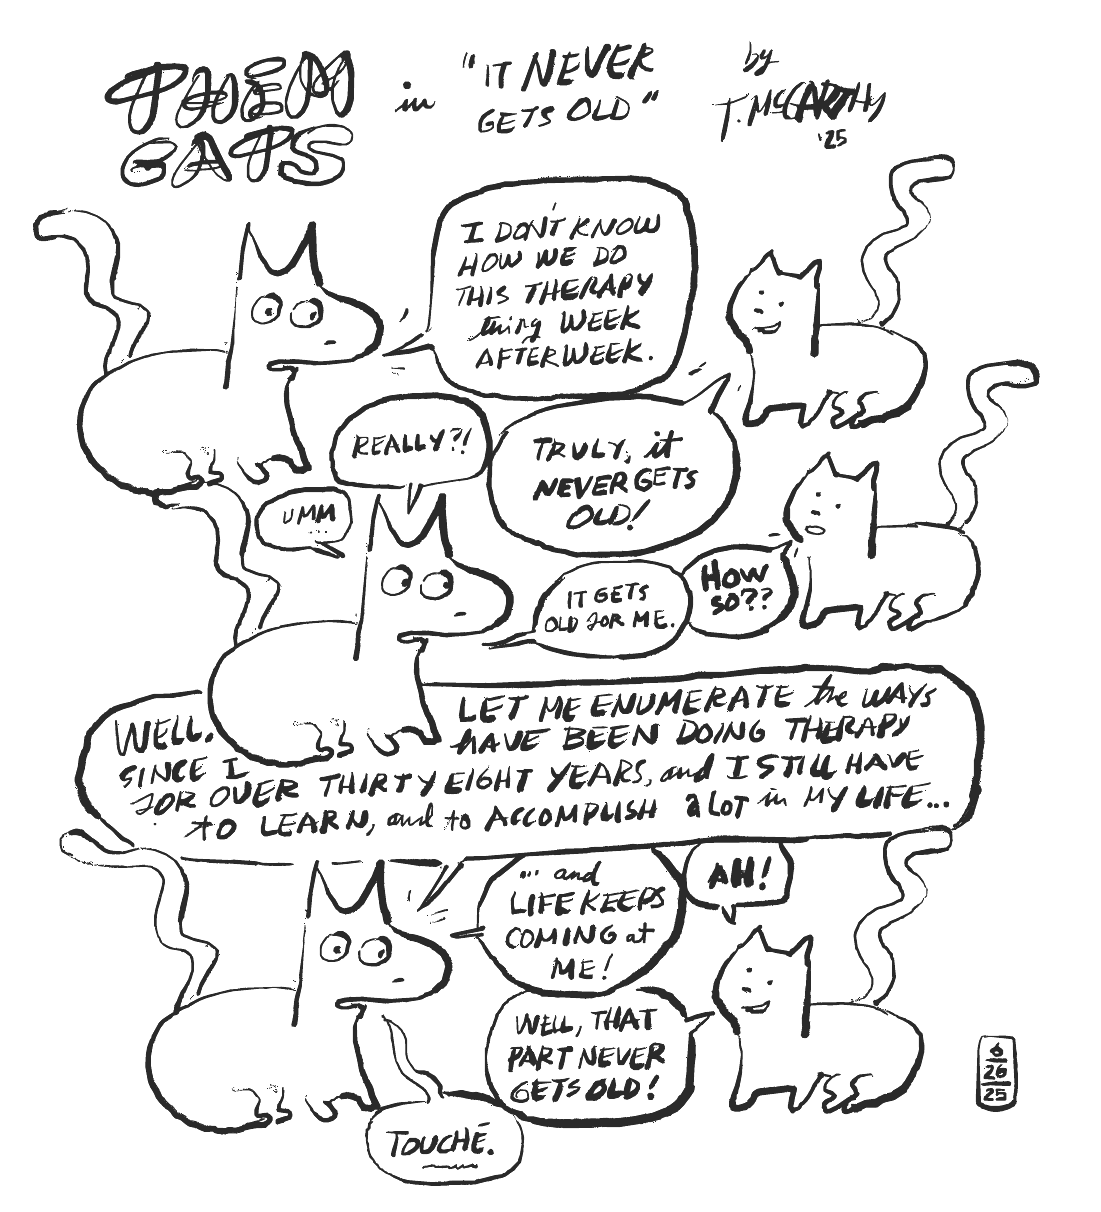 THEM
CATS
in
"IT NEVER
GETS OLD"
by
T. McCARTHY
'25
I DON'T KNOW
HOW WE DO
THIS THERAPY
thing WEEK
AFTER WEEK.
TRULY, it
NEVER GETS
OLD!
REALLY?!
UMM
...
IT GETS
OLD FOR ME.
HOW
SO??
WELL. LET ME ENUMERATE the WAYS
SINCE I HAVE BEEN DOING THERAPY
FOR OVER THIRTY EIGHT YEARS, and I STILL HAVE
TO LEARN, and to ACCOMPLISH a LOT in MY LIFE...
... and
LIFE KEEPS
COMING at
ME!
AH!
WELL, THAT
PART NEVER
GETS OLD!
TOUCHÉ.
6
26
25